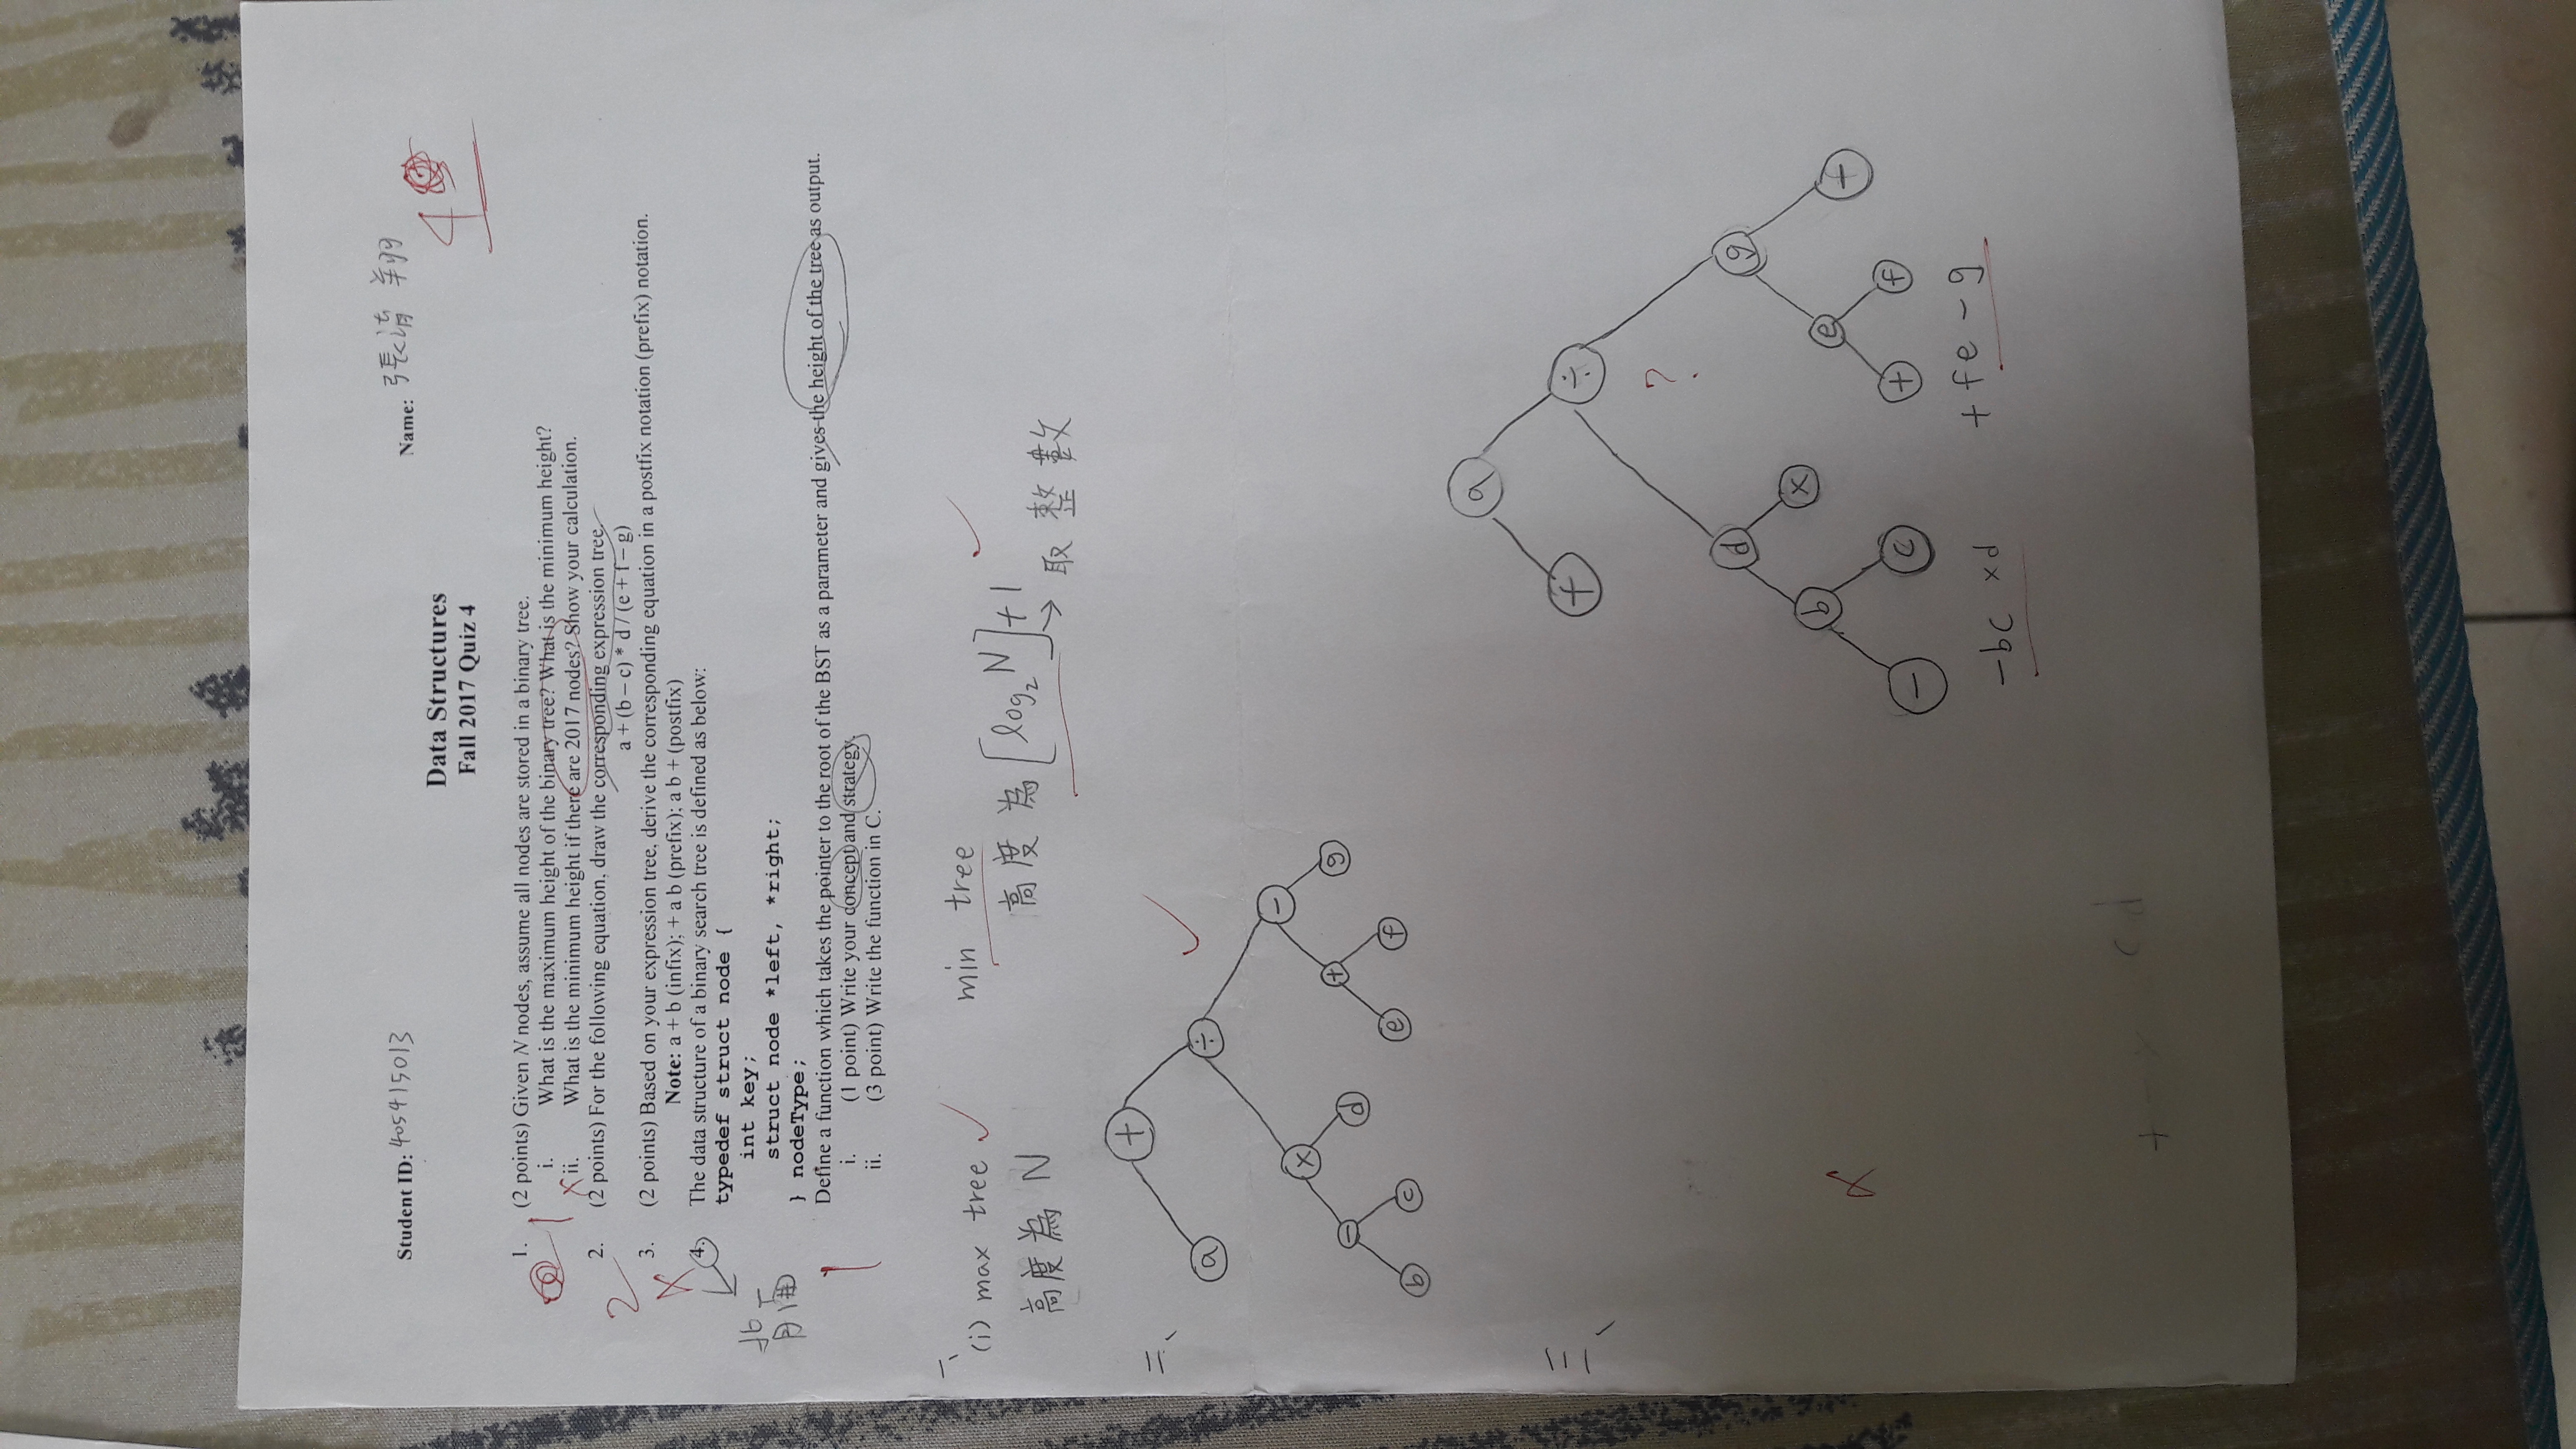 Student ID: 405415013
Name: 張清翔
4
Data Structures
Fall 2017 Quiz 4
1. (2 points) Given N nodes, assume all nodes are stored in a binary tree.
1 i. What is the maximum height of the binary tree? What is the minimum height?
x ii. What is the minimum height if there are 2017 nodes? Show your calculation.
2 2. (2 points) For the following equation, draw the corresponding expression tree.
a + (b – c) * d / (e + f – g)
x 3. (2 points) Based on your expression tree, derive the corresponding equation in a postfix notation (prefix) notation.
Note: a + b (infix); + a b (prefix); a b + (postfix)
4. The data structure of a binary search tree is defined as below:
typedef struct node {
int key;
struct node *left, *right;
背面
} nodeType;
Define a function which takes the pointer to the root of the BST as a parameter and gives the height of the tree as output.
1 i. (1 point) Write your concept and strategy.
ii. (3 point) Write the function in C.
一、
(i) max tree ✓
min tree ✓
高度為 N
高度為 [log₂N]+1
→ 取整數
二、
+
a ÷ ✓
x −
− d + g
b c e f
三、
a
f ÷
?
d g
b x e
− c + f
−bc xd
+fe −g
x
+ c d